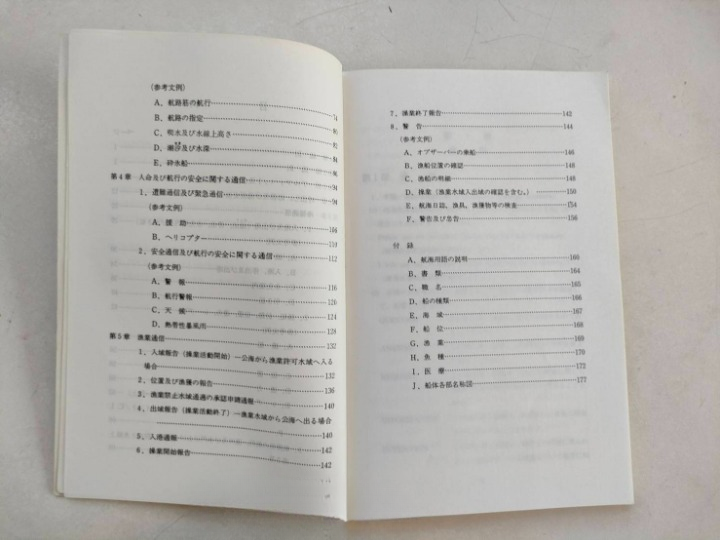 (参考文例)
A、航路筋の航行…………74
B、航路の指定…………80
C、喫水及び水線上高さ…………82
D、潮汐及び水深…………90
E、砕氷船…………94
第4章 人命及び航行の安全に関する通信…………94
1、遭難通信及び緊急通信…………94
(参考文例)
A、援助…………106
B、ヘリコプター…………110
2、安全通信及び航行の安全に関する通信…………112
(参考文例)
A、警報…………116
B、航行警報…………120
C、天候…………124
D、熱帯性暴風雨…………128
第5章 漁業通信…………132
1、入域報告(操業活動開始)—公海から漁業許可水域へ入る
場合…………132
2、位置及び漁獲の報告…………136
3、漁業禁止水域通過の承認申請通報…………140
4、出域報告(操業活動終了)—漁業水域から公海へ出る場合
…………140
5、入港通報…………142
6、操業開始報告…………142
7、漁業終了報告…………142
8、警告…………144
(参考文例)
A、オブザーバーの乗船…………146
B、漁船位置の確認…………148
C、漁船の明細…………148
D、操業(漁業水域入出域の確認を含む。)…………150
E、航海日誌、漁具、漁獲物等の検査…………152
F、警告及び忠告…………156
付録
A、航海用語の説明…………160
B、書類…………164
C、職名…………165
D、船の種類…………166
E、海域…………167
F、船位…………167
G、漁業…………170
H、魚種…………171
I、医療…………172
J、船体各部名称図…………177